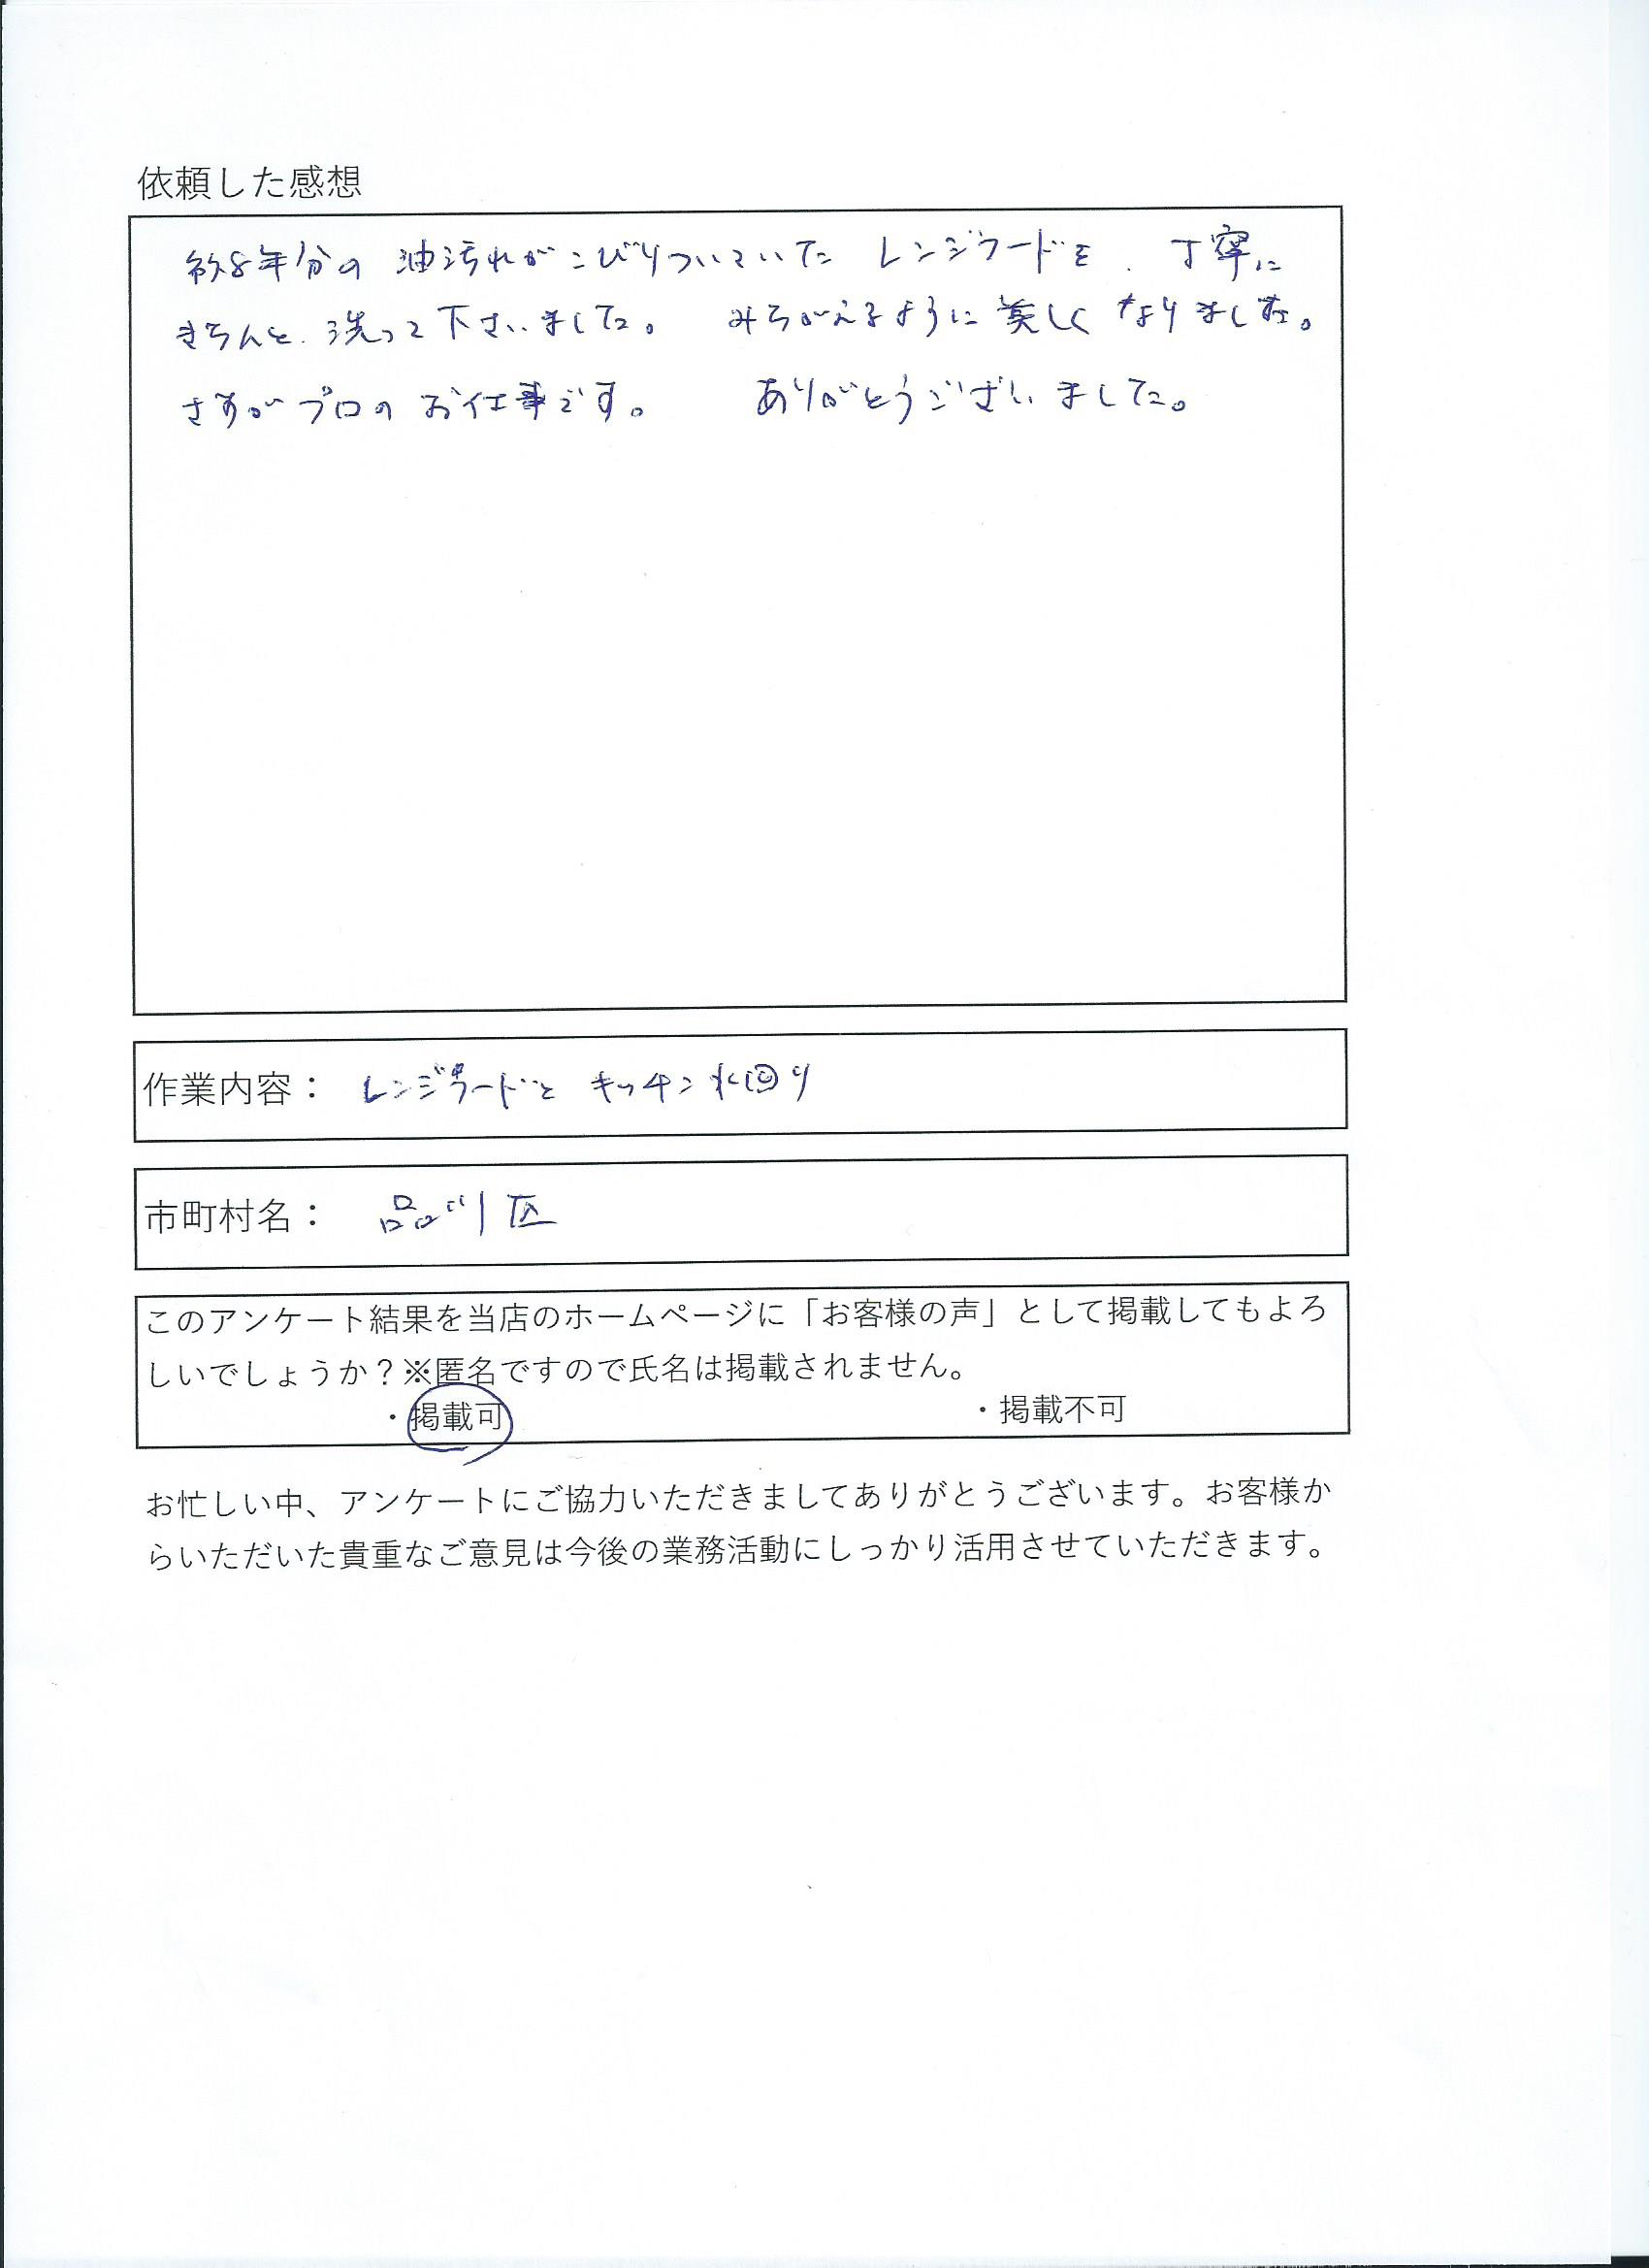 依頼した感想
約8年分の 油汚れがこびりついていた レンジフードを、丁寧に
きちんと 洗って下さいました。 みちがえるように美しくなりました。
さすがプロのお仕事です。 ありがとうございました。
作業内容： レンジフードと キッチン水回り
市町村名： 品川区
このアンケート結果を当店のホームページに「お客様の声」として掲載してもよろ
しいでしょうか？※匿名ですので氏名は掲載されません。
・掲載可 ・掲載不可
お忙しい中、アンケートにご協力いただきましてありがとうございます。お客様か
らいただいた貴重なご意見は今後の業務活動にしっかり活用させていただきます。